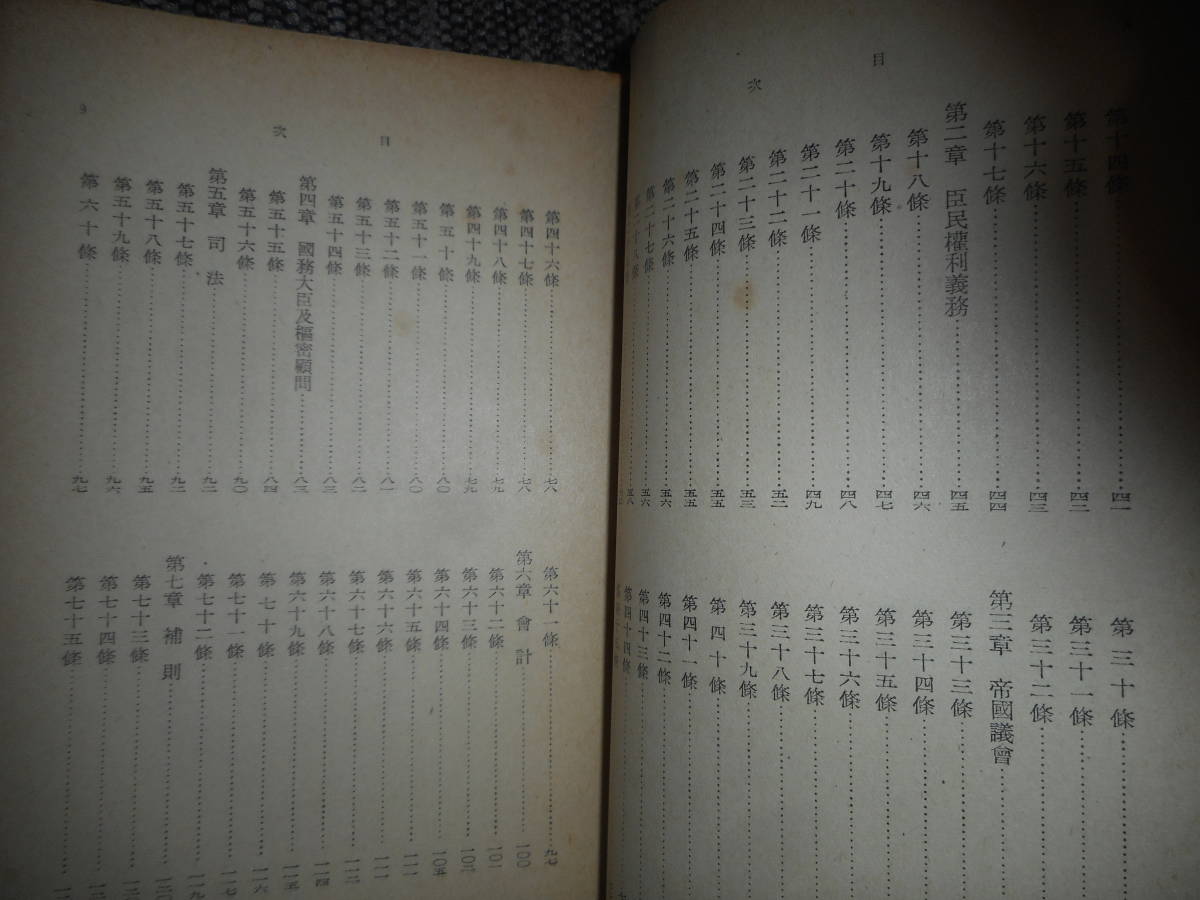 目次
第十四條……四一
第十五條……四二
第十六條……四三
第十七條……四四
第二章　臣民權利義務……四五
第十八條……四六
第十九條……四七
第二十條……四八
第二十一條……四九
第二十二條……五二
第二十三條……五三
第二十四條……五五
第二十五條……五五
第二十六條……五六
第二十七條……五六
第二十八條……五八
第三十條
第三十一條
第三十二條
第三章　帝國議會
第三十三條
第三十四條
第三十五條
第三十六條
第三十七條
第三十八條
第三十九條
第四十條
第四十一條
第四十二條
第四十三條
第四十四條
目次
9
第四十六條……七八
第四十七條……七八
第四十八條……七九
第四十九條……七九
第五十條……八〇
第五十一條……八〇
第五十二條……八一
第五十三條……八二
第五十四條……八三
第四章　國務大臣及樞密顧問……八三
第五十五條……八四
第五十六條……九〇
第五章　司法……九二
第五十七條……九二
第五十八條……九五
第五十九條……九六
第六十條……九七
第六十一條……九七
第六章　會計……一〇〇
第六十二條……一〇一
第六十三條……一〇三
第六十四條……一〇五
第六十五條
第六十六條
第六十七條
第六十八條……一一四
第六十九條……一一五
第七十條……一一六
第七十一條……一一七
第七十二條……一一九
第七章　補則
第七十三條
第七十四條
第七十五條